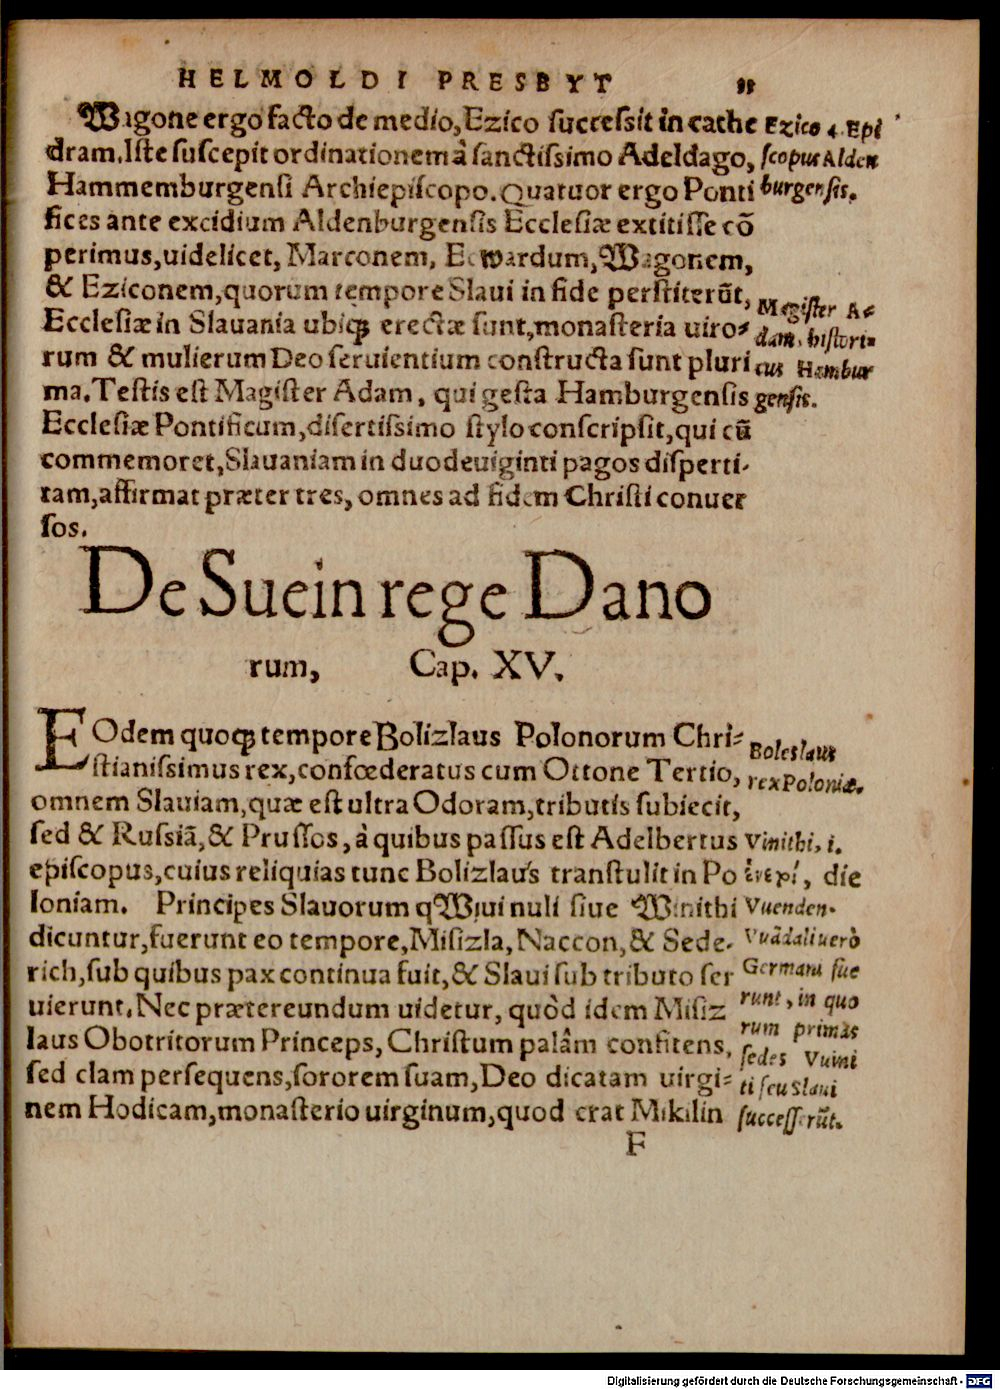 HELMOLDI PRESBYT
Wagone ergo facto de medio, Ezico successit in cathe
dram. Iste suscepit ordinationem à sanctissimo Adeldago,
Hammemburgensi Archiepiscopo. Quatuor ergo Ponti
fices ante excidium Aldenburgensis Ecclesiæ extitisse cõ
perimus, uidelicet, Marconem, Ecwardum, Wagonem,
& Eziconem, quorum tempore Slaui in fide perstiterũt,
Ecclesiæ in Slauania ubiqꝫ erectæ sunt, monasteria uiro-
rum & mulierum Deo seruientium constructa sunt pluri
ma. Testis est Magister Adam, qui gesta Hamburgensis
Ecclesiæ Pontificum, disertissimo stylo conscripsit, qui cũ
commemoret, Slauaniam in duodeuiginti pagos disperti-
tam, affirmat præter tres, omnes ad fidem Christi conuer
sos.
Ezico 4. Epi
scopus Alden
burgensis.
Magister A-
dam, histori-
cus Hambur
gensis.
De Suein rege Dano
rum, Cap. XV.
EOdem quoqꝫ tempore Bolizlaus Polonorum Chri-
stianissimus rex, confœderatus cum Ottone Tertio,
omnem Slauiam, quæ est ultra Odoram, tributis subiecit,
sed & Russiã, & Prussos, à quibus passus est Adelbertus
episcopus, cuius reliquias tunc Bolizlaus transtulit in Po
loniam. Principes Slauorum qWiui nuli siue Winithi
dicuntur, fuerunt eo tempore, Misizla, Naccon, & Sede-
rich, sub quibus pax continua fuit, & Slaui sub tributo ser
uierunt. Nec prætereundum uidetur, quòd idem Misiz
laus Obotritorum Princeps, Christum palâm confitens,
sed clam persequens, sororem suam, Deo dicatam uirgi-
nem Hodicam, monasterio uirginum, quod erat Mikilin
Boleslaus
rex Poloniæ.
Vinithi, i.
die
Vuenden.
Vuãdali uerò
Germani fue
runt, in quo
rum primas
sedes Vuini
ti seu Slaui
successerũt.
F
Digitalisierung gefördert durch die Deutsche Forschungsgemeinschaft - DFG